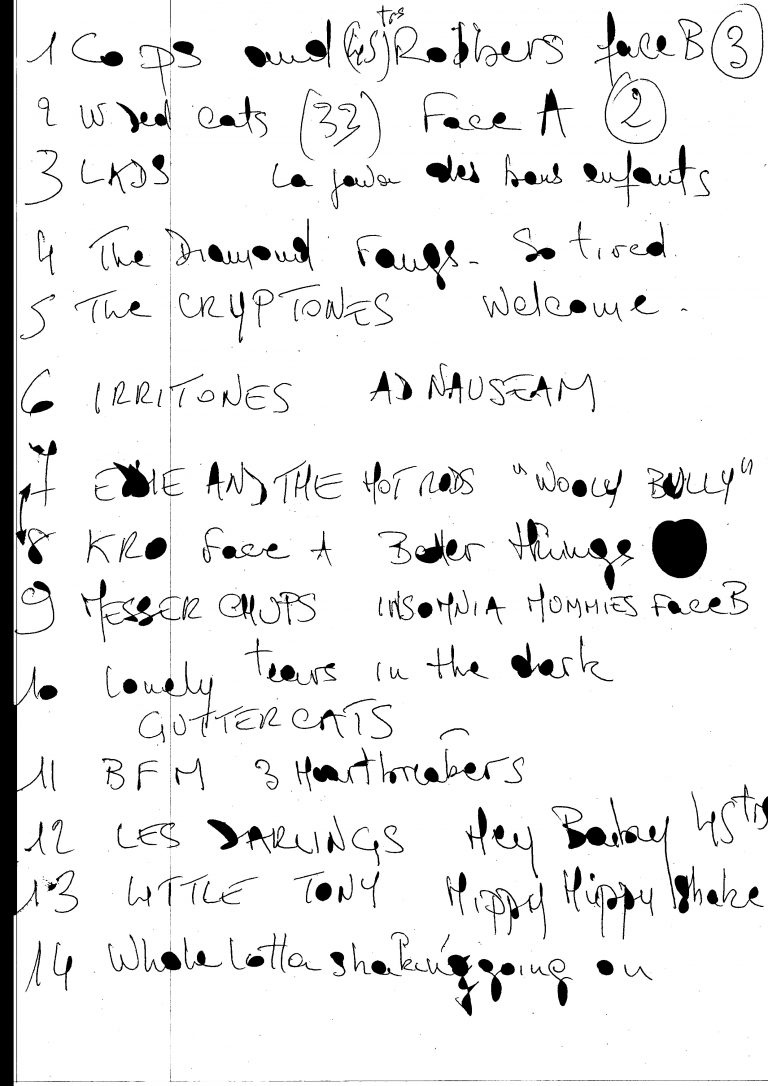 1 Cops and (45trs) Robbers face B 3
2 Wired cats (33) Face A 2
3 LADS La java des bons enfants
4 The Diamond Fangs - So tired
5 The CRYPTONES Welcome.
6 IRRITONES AD NAUSEAM
7 EDDIE AND THE HOT RODS "WOOLY BULLY"
8 KRO face A Better things
9 MESSER CHUPS INSOMNIA MUMMIES Face B
10 Lonely tears in the dark
GUTTERCATS
11 BFM 3 Heartbreakers
12 LES DARLINGS Hey Baby 45trs
13 LITTLE TONY Hippy Hippy shake
14 Whole lotta shaking going on